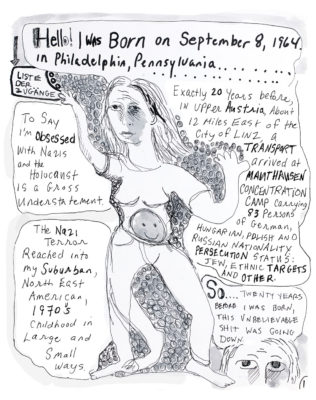 Hello! I was Born on September 8, 1964
in Philadelphia, Pennsylvania..........
LISTE
DER
ZUGÄNGE
To Say
I'm OBSESSED
With Nazis
and the
Holocaust
is a Gross
Understatement.
Exactly 20 Years before,
in UPPER AUSTRIA, About
12 Miles East of the
City of LINZ, a
TRANSPORT
arrived at
MAUTHAUSEN
CONCENTRATION
CAMP carrying
83 Persons
of German,
HUNGARIAN, POLISH AND
RUSSIAN NATIONALITY.
PERSECUTION STATUS:
JEW, ETHNIC TARGETS
AND OTHER.
The Nazi
Terror
Reached into
my Suburban,
North East
American,
1970's
Childhood in
Large and
Small
ways.
So.... TWENTY YEARS
BEFORE I WAS BORN,
THIS UNBELIEVABLE
SHIT WAS GOING
DOWN.
1